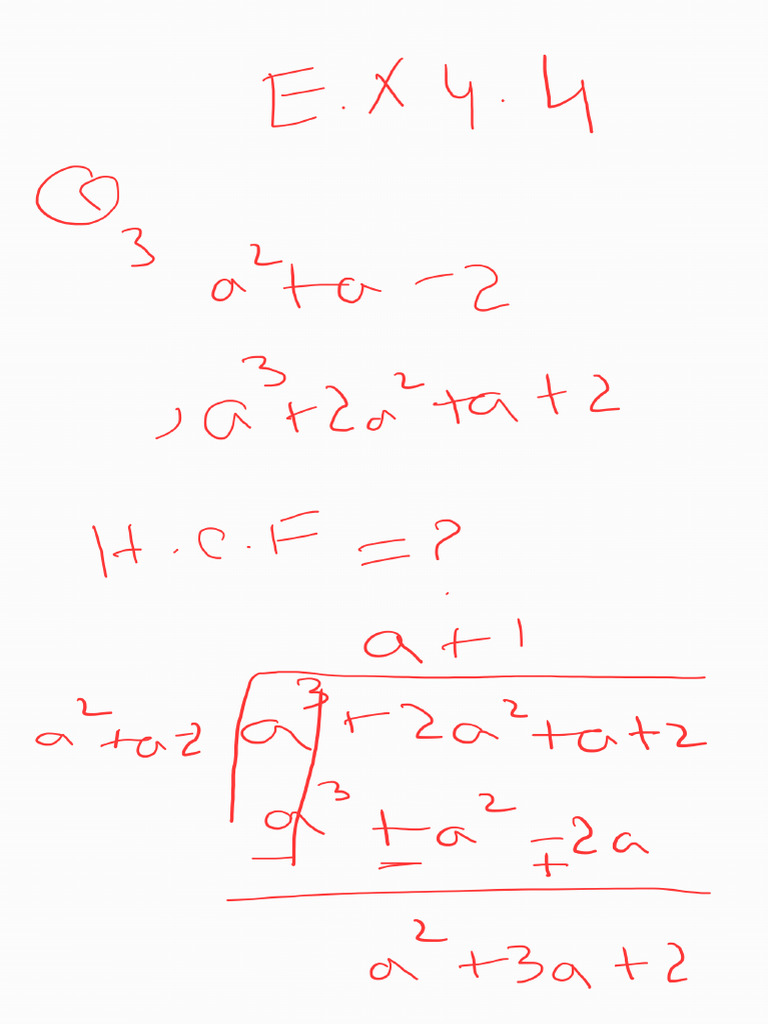 E.X 4.4
3 a²+a-2
, a³+2a²+a+2
H.C.F = ?
a+1
a²+a-2 a³+2a²+a+2
a³+a²-2a
- - +
a²+3a+2